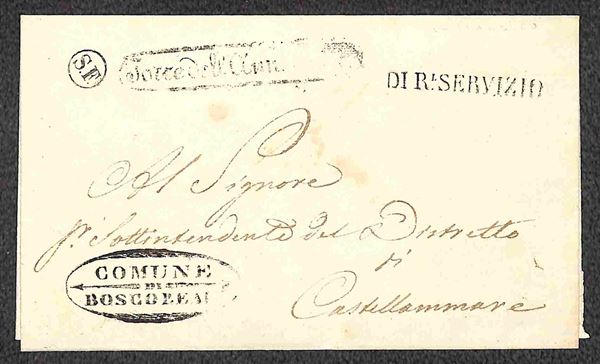 SF
Torre dell' Ann.
DI Rl. SERVIZIO
Al Signore
Sottintendente del Distretto
di
Castellammare
COMUNE
DI
BOSCOREA